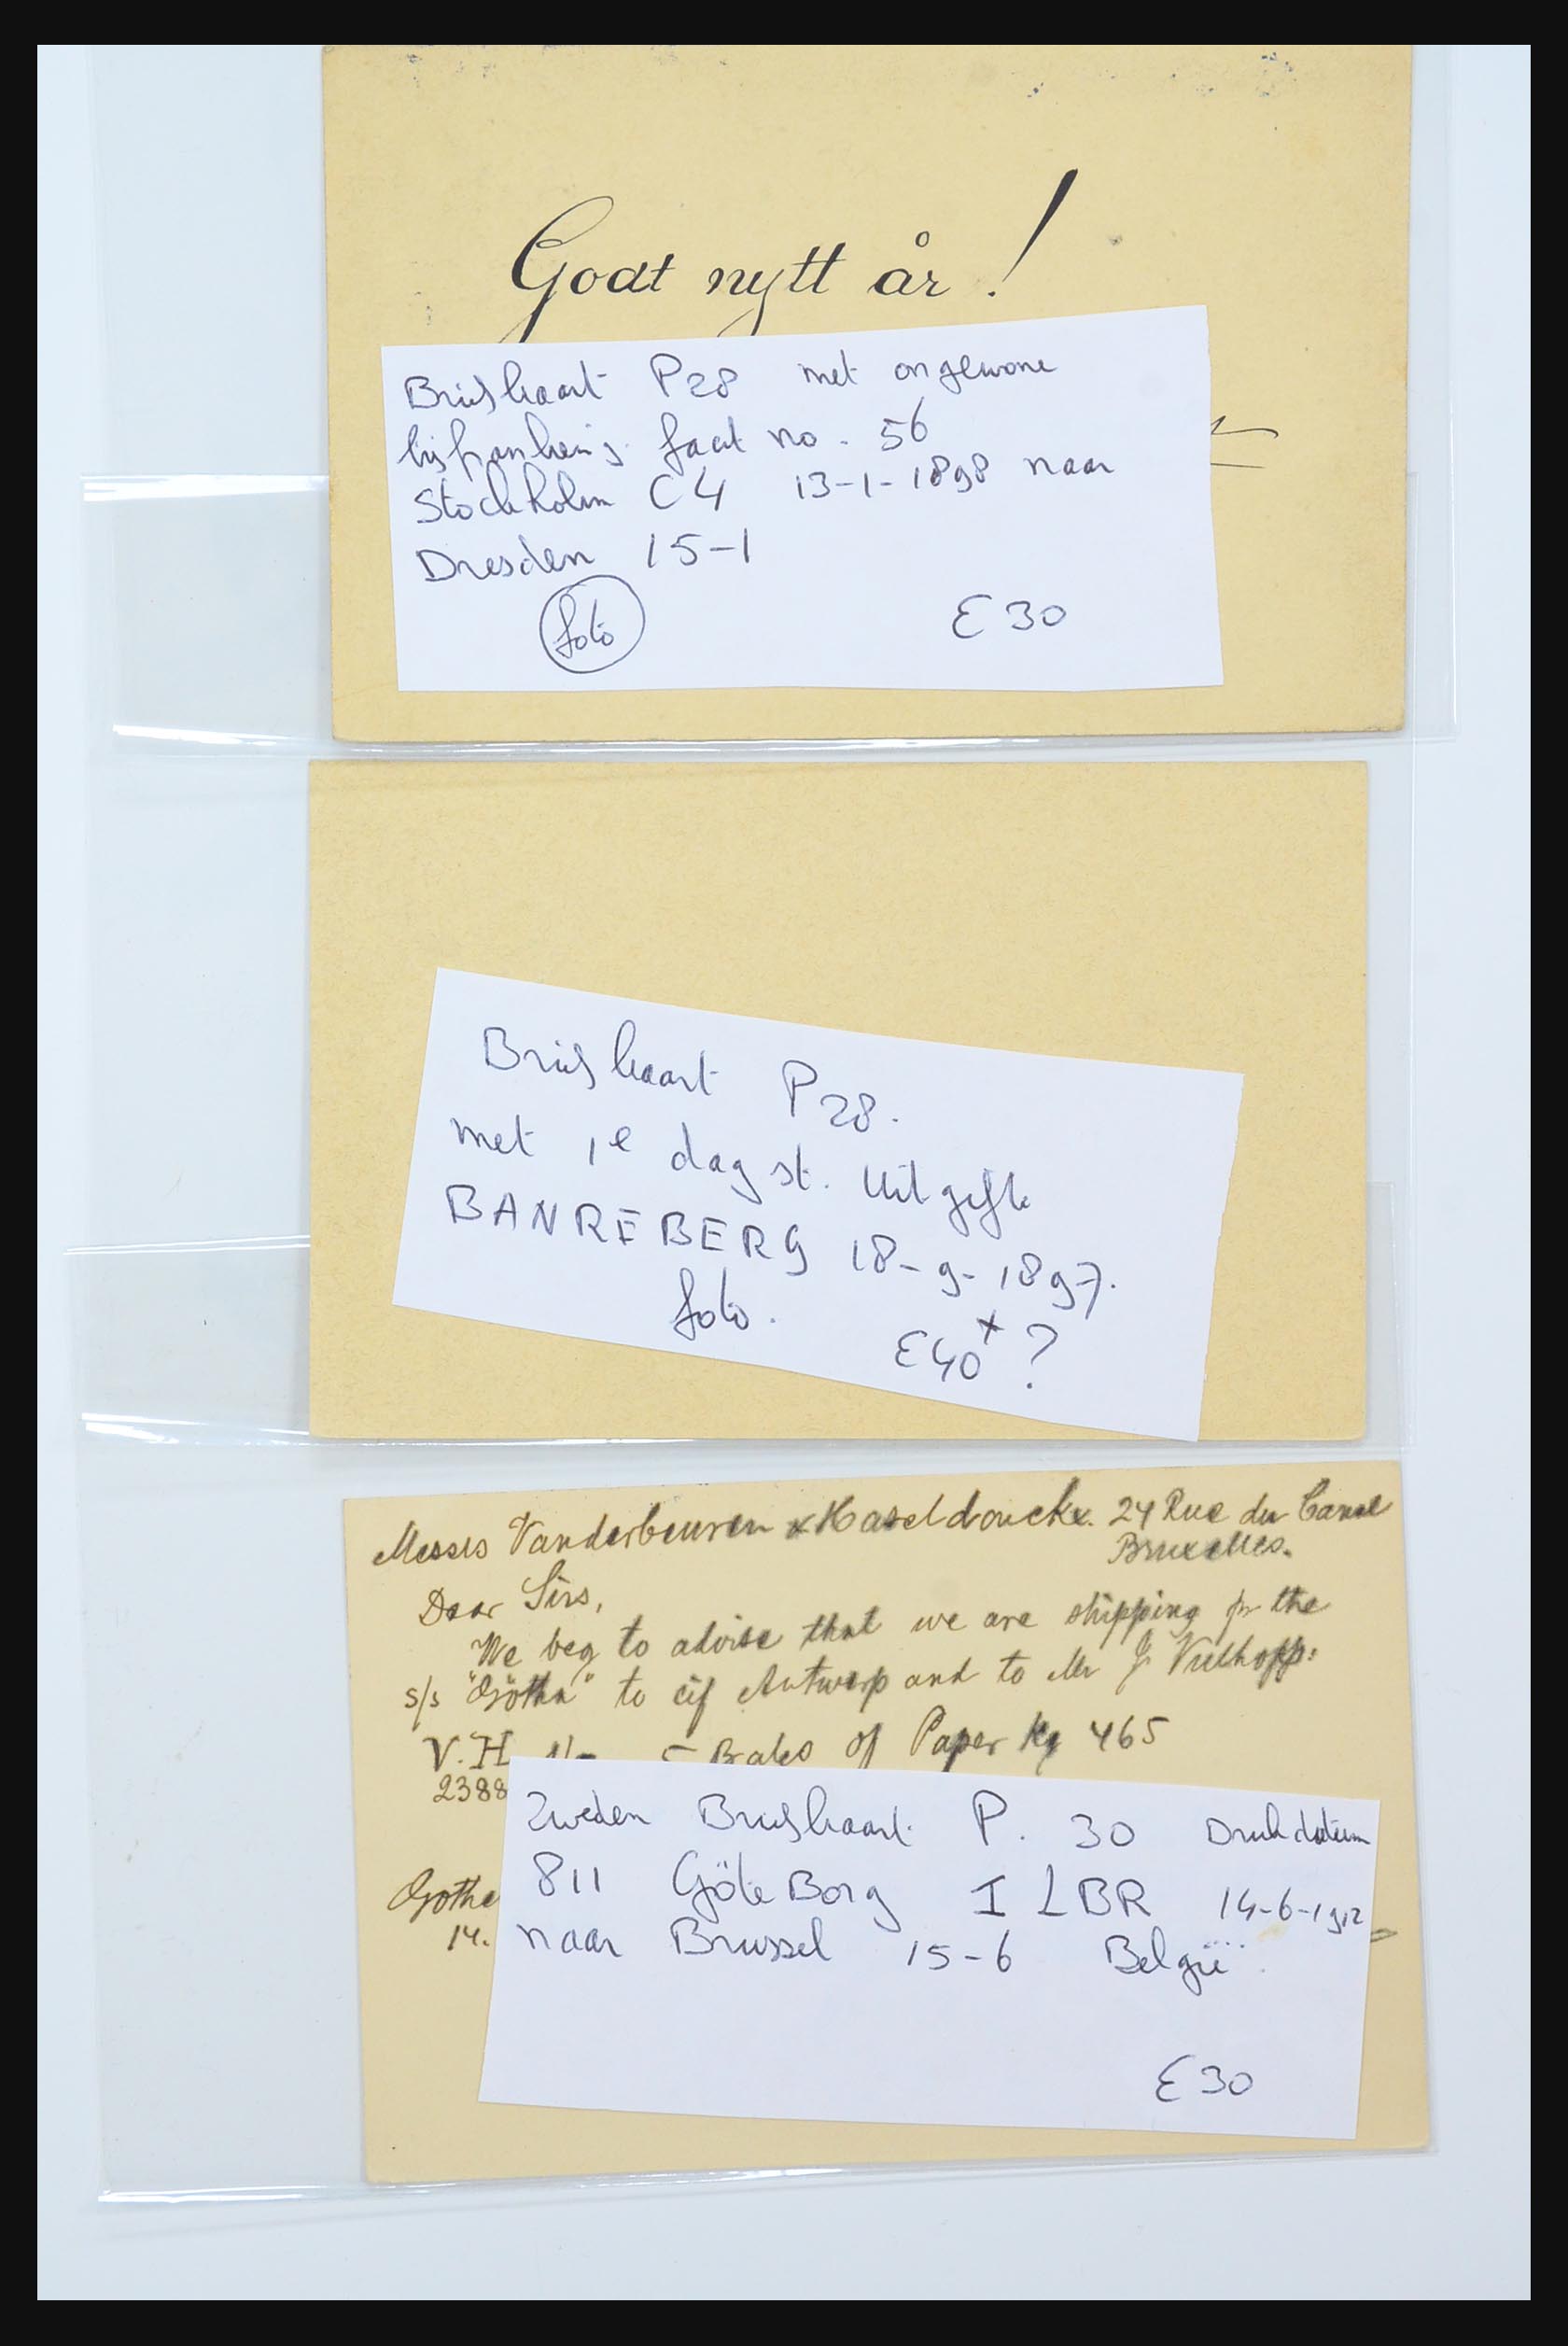 Godt nytt år!
Briefkaart P28 met ongewone
bijfrankering facit no. 56
Stockholm C4 13-1-1898 naar
Dresden 15-1
foto €30
Briefkaart P28.
met 1e dag st. Uitgifte
BANREBERG 18-9-1897.
foto. €40+ ?
Messrs Vanderbeuren & Haseldonckx. 24 Rue du Canal
Bruxelles.
Dear Sirs,
We beg to advise that we are shipping pr the
s/s "Götha" to cif Antwerp and to Mr J.
V.H. 5 Bales of Paper Kg 465
2388
Zweden Briefkaart P. 30 Drukdatum
811 GöteBorg I LBR 14-6-1912
naar Brussel 15-6 België.
Gothe
14.
€30